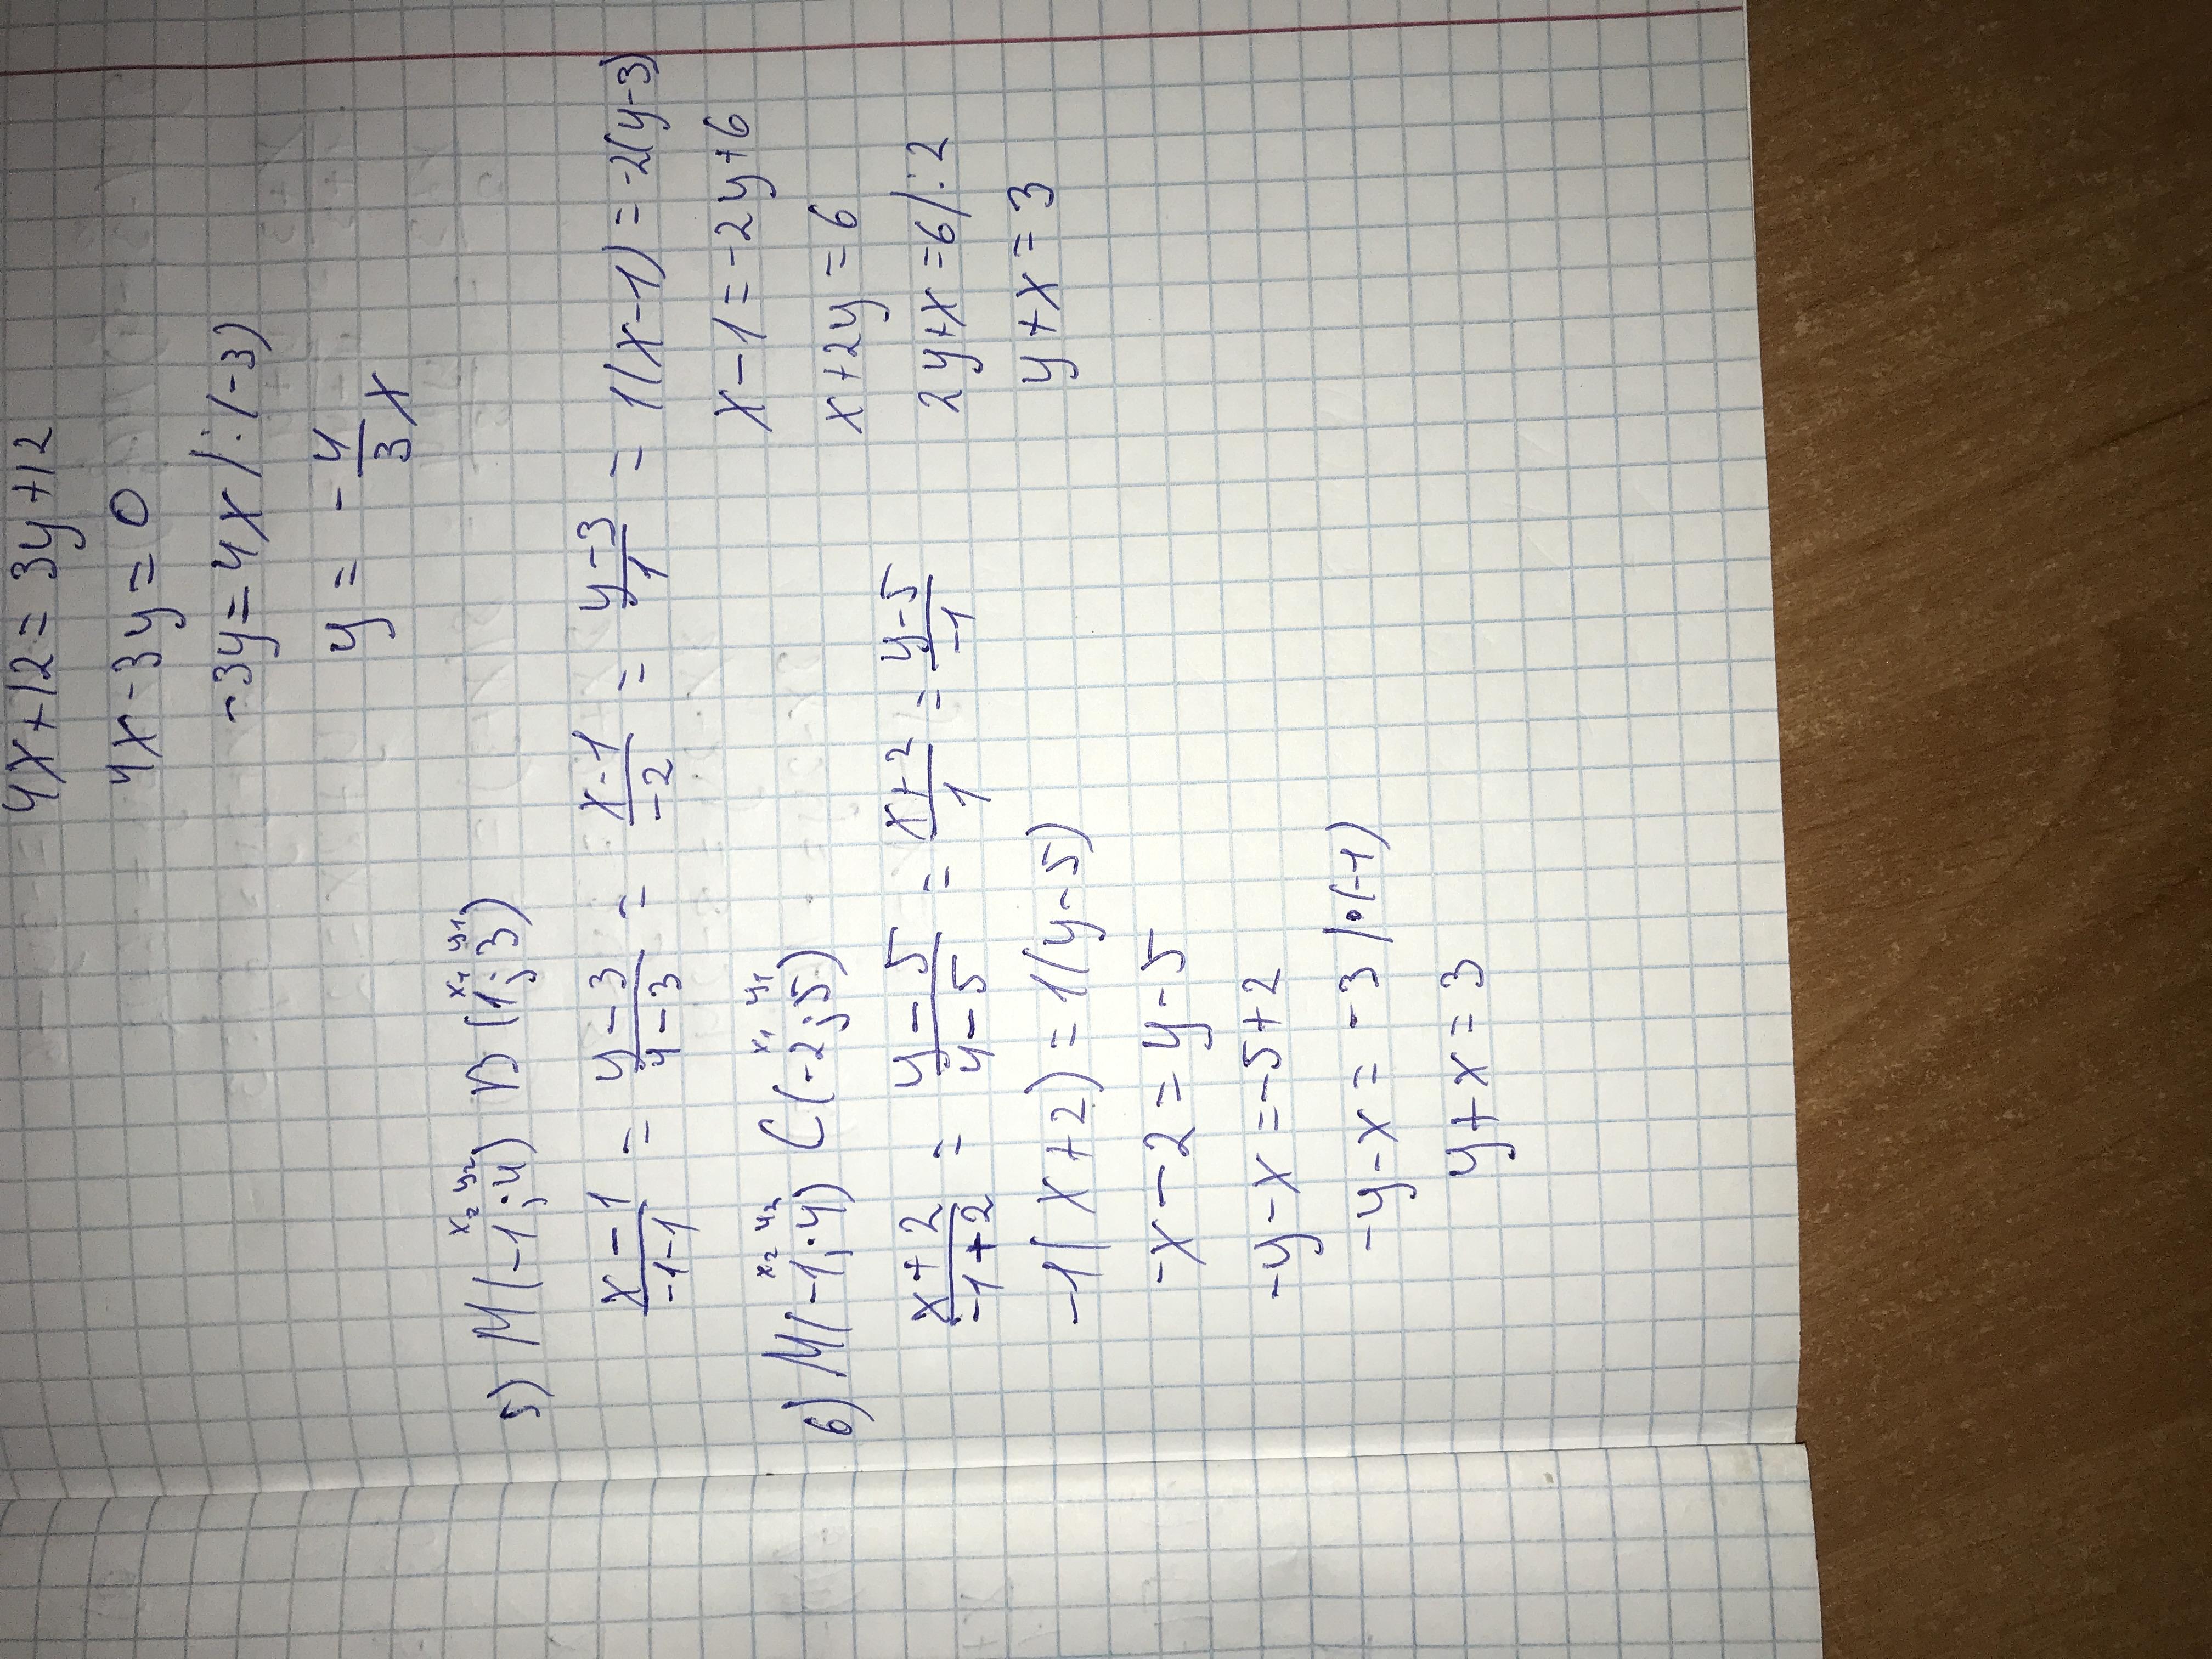 4x+12=3y+12
4x-3y=0
-3y=4x/:(-3)
y = -4/3 x
5) M(-1;4) B(1;3)
x₂ y₂ x₁ y₁
(x-1)/(-1-1) = (y-3)/(4-3) = (x-1)/(-2) = (y-3)/1 = 1(x-1)=-2(y-3)
x-1=-2y+6
x+2y=6
2y+x=6/:2
y+x=3
6) M(-1;4) C(-2;5)
x₂ y₂ x₁ y₁
(x+2)/(-1+2) = (y-5)/(4-5) = (x+2)/1 = (y-5)/(-1)
-1(x+2)=1(y-5)
-x-2=y-5
-y-x=-5+2
-y-x=-3 |·(-1)
y+x=3